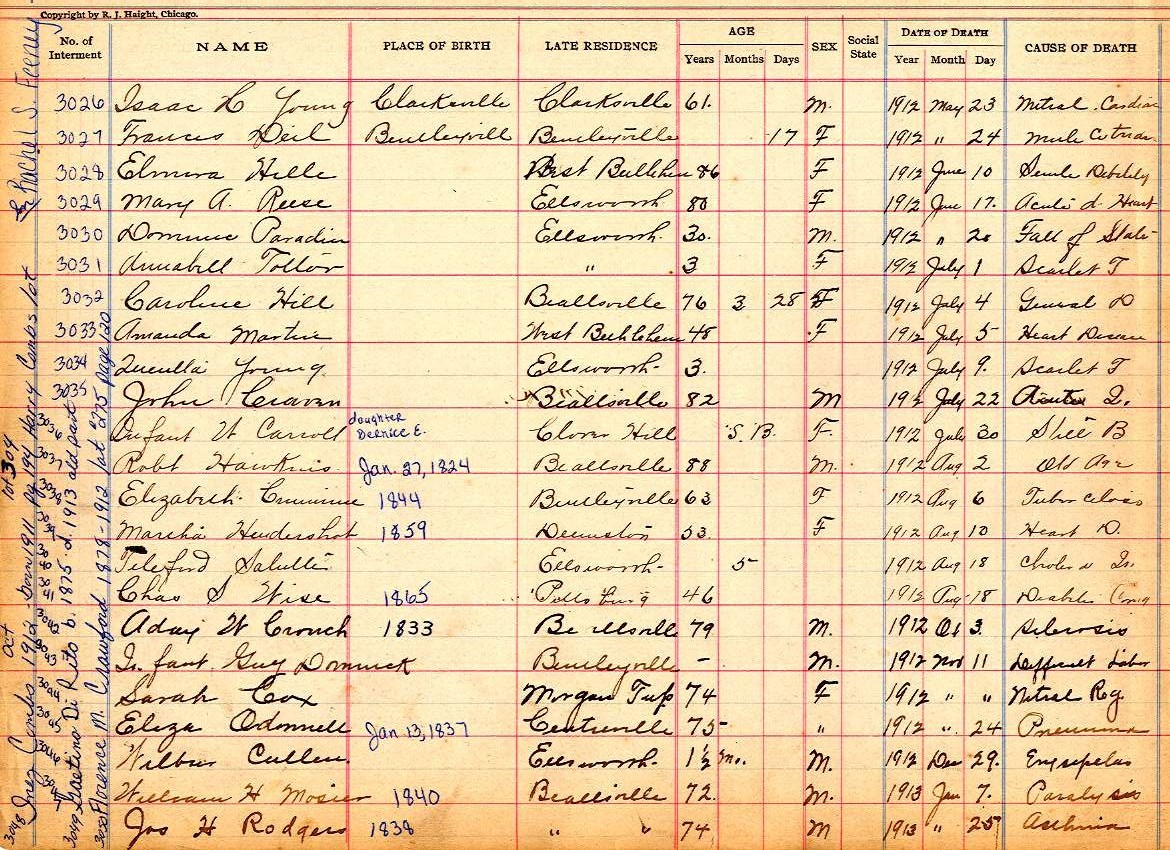 Copyright by R. J. Haight, Chicago.
No. of Interment NAME PLACE OF BIRTH LATE RESIDENCE AGE Years Months Days SEX Social State DATE OF DEATH Year Month Day CAUSE OF DEATH
3026 Isaac H Young Clarksville Clarksville 61. M. 1912 May 23 Mitral Cardiac
3027 Frances Deil Bentleyville Bentleyville 17 F 1912 " 24
3028 Elmira Hille West Bethlehem 86 F 1912 June 10 Senile Debility
3029 Mary A. Reese Ellsworth 80 F 1912 June 17. Acute d. Heart
3030 Dominic Paradin Ellsworth. 30. M. 1912 " 20 Fall of Slate
3031 Annabell " 3 F 1912 July 1 Scarlet F
3032 Caroline Hill Beallsville 76 3 28 F 1912 July 4 General D
3033 Amanda Martin West Bethlehem 48 F 1912 July 5 Heart Disease
3034 Young Ellsworth- 3. 1912 July 9. Scarlet F
3035 John Craven Beallsville 82 M 191 July 22
3036 Infant W Carroll daughter Bernice E. Clover Hill S. B. F. 1912 July 30 Still B
3037 Robt Hawkins Jan. 27, 1824 Beallsville 88 M. 1912 Aug 2 Old Age
3038 Elizabeth 1844 Bentleyville 63 F 1912 Aug 6 Tuberculosis
3039 Marsha Hendershot 1859 Deemston 53. F 1912 Aug 10 Heart D.
3040 Teleford Ellsworth- 5 1912 Aug 18 Cholera In.
3041 Chas S Wise 1865 Pittsburg 46 1912 Aug 18 Diabetic
3042 W Crouch 1833 Beallsville 79 M. 1912 Oct 3. Sclerosis
3043 Infant Guy Dominick Bentleyville - M. 1912 Nov 11 Difficult Labor
3044 Sarah Cox Morgan Twp 74 F 1912 " " Mitral Reg.
3045 Eliza Odonnell Jan 13, 1837 Centreville 75 " 1912 " 24 Pneumonia
3046 Wilbur Cullen Ellsworth- 1½ mo. M. 1912 Dec 29. Erysipelas
3047 William H Mosier 1840 Beallsville 72. M. 1913 Jan 7. Paralysis
Jos H Rodgers 1838 " " 74 M 1913 " 25 Asthma
Rachel S. Feeney
3048 Inez Combs 1912 - born 1911 pg 194 Harry Combs lot
Oct lot 304
3049 Gaetina Di Rito b. 1875 d. 1913 old part
3050 Florence M. Crawford 1878-1912 lot #275 page 120